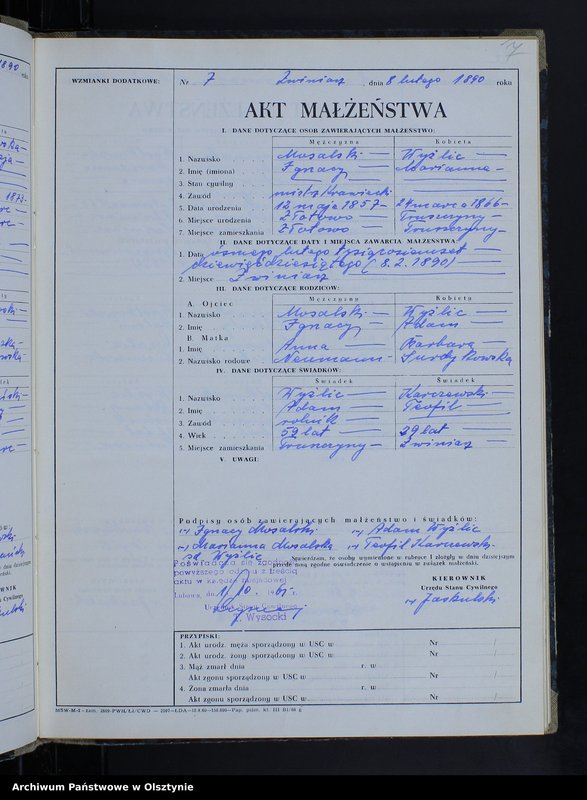 WZMIANKI DODATKOWE:
Nr 7 Zwiniarz, dnia 8 lutego 1890 roku
AKT MAŁŻEŃSTWA
I. DANE DOTYCZĄCE OSÓB ZAWIERAJĄCYCH MAŁŻEŃSTWO:
Mężczyzna Kobieta
1. Nazwisko Mosalski Wyżlic
2. Imię (imiona) Ignacy Marianna
3. Stan cywilny
4. Zawód mistrz krawiecki
5. Data urodzenia 12 maja 1857 24 marca 1866
6. Miejsce urodzenia Złotowo Truszczyny
7. Miejsce zamieszkania Złotowo Truszczyny
II. DANE DOTYCZĄCE DATY I MIEJSCA ZAWARCIA MAŁŻEŃSTWA
1. Data ósmego lutego tysiąc osiemset
dziewięćdziesiątego (8.2.1890)
2. Miejsce Zwiniarz
III. DANE DOTYCZĄCE RODZICÓW:
Mężczyzny Kobiety
A. Ojciec
1. Nazwisko Mosalski Wyżlic
2. Imię Ignacy Adam
B. Matka
1. Imię Anna Barbara
2. Nazwisko rodowe Neumann
IV. DANE DOTYCZĄCE ŚWIADKÓW:
Świadek Świadek
1. Nazwisko Wyżlic Karczewski
2. Imię Adam Teofil
3. Zawód rolnik
4. Wiek 59 lat 29 lat
5. Miejsce zamieszkania Truszczyny Zwiniarz
V. UWAGI:
Podpisy osób zawierających małżeństwo i świadków:
Ignacy Mosalski Adam Wyżlic
Marianna Mosalska Teofil Karczewski
Wyżlic
Stwierdzam, że osoby wymienione w rubryce I złożyły w dniu dzisiejszym
przede mną zgodne oświadczenie o wstąpieniu w związek małżeński.
Poświadcza się zgodność
powyższego odpisu z treścią
aktu w księdze miejscowej
J. Wysocki
KIEROWNIK
Urzędu Stanu Cywilnego
Jaskulski
PRZYPISKI:
1. Akt urodz. męża sporządzony w USC w Nr /
2. Akt urodz. żony sporządzony w USC w Nr /
3. Mąż zmarł dnia r. w
Akt zgonu sporządzony w USC w Nr /
4. Żona zmarła dnia r. w
Akt zgonu sporządzony w USC w Nr /
Archiwum Państwowe w Olsztynie